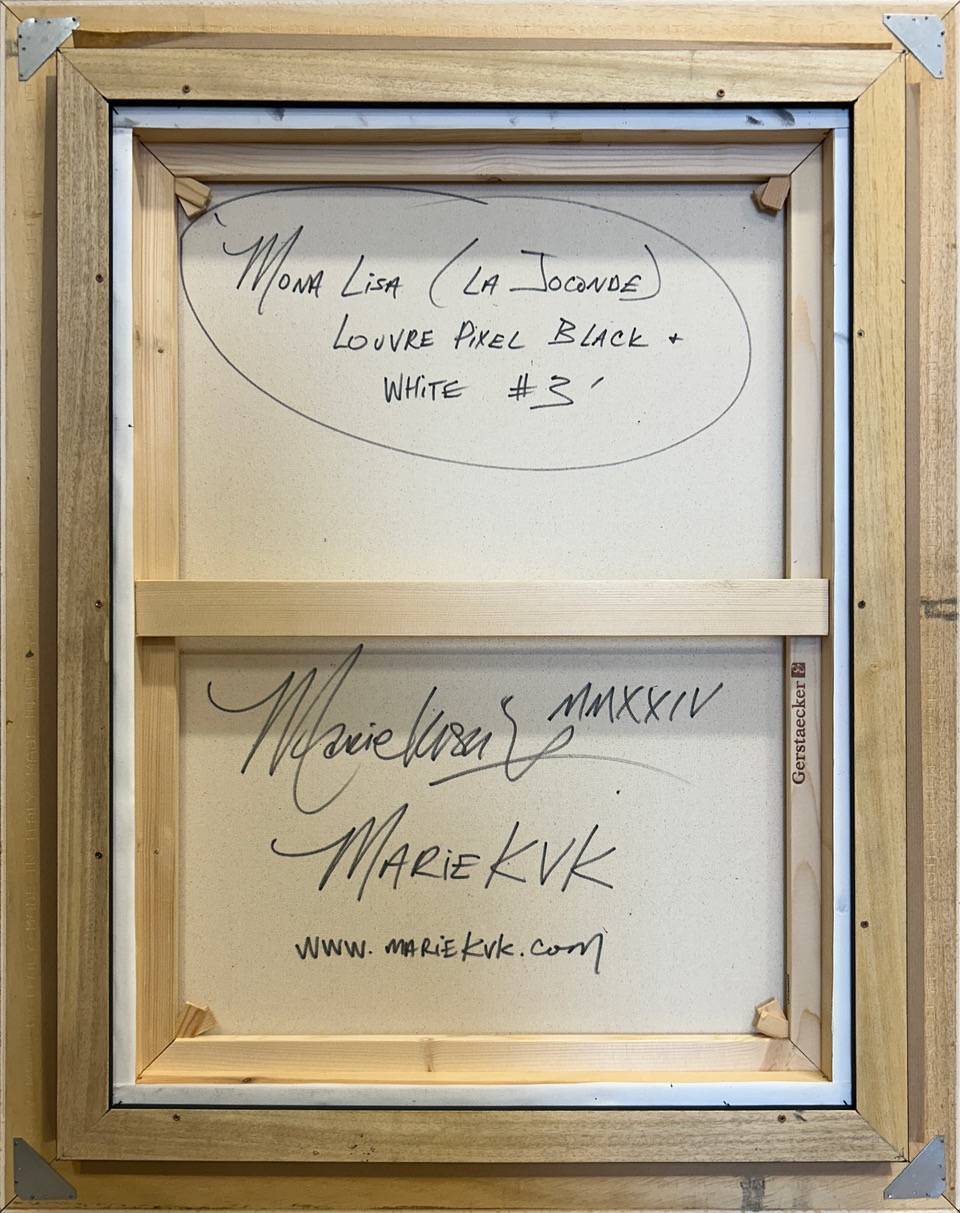 Mona Lisa (La Joconde)
Louvre Pixel Black +
White #3
MMXXIV
Gerstaecker
Marie KVK
www.mariekvk.com